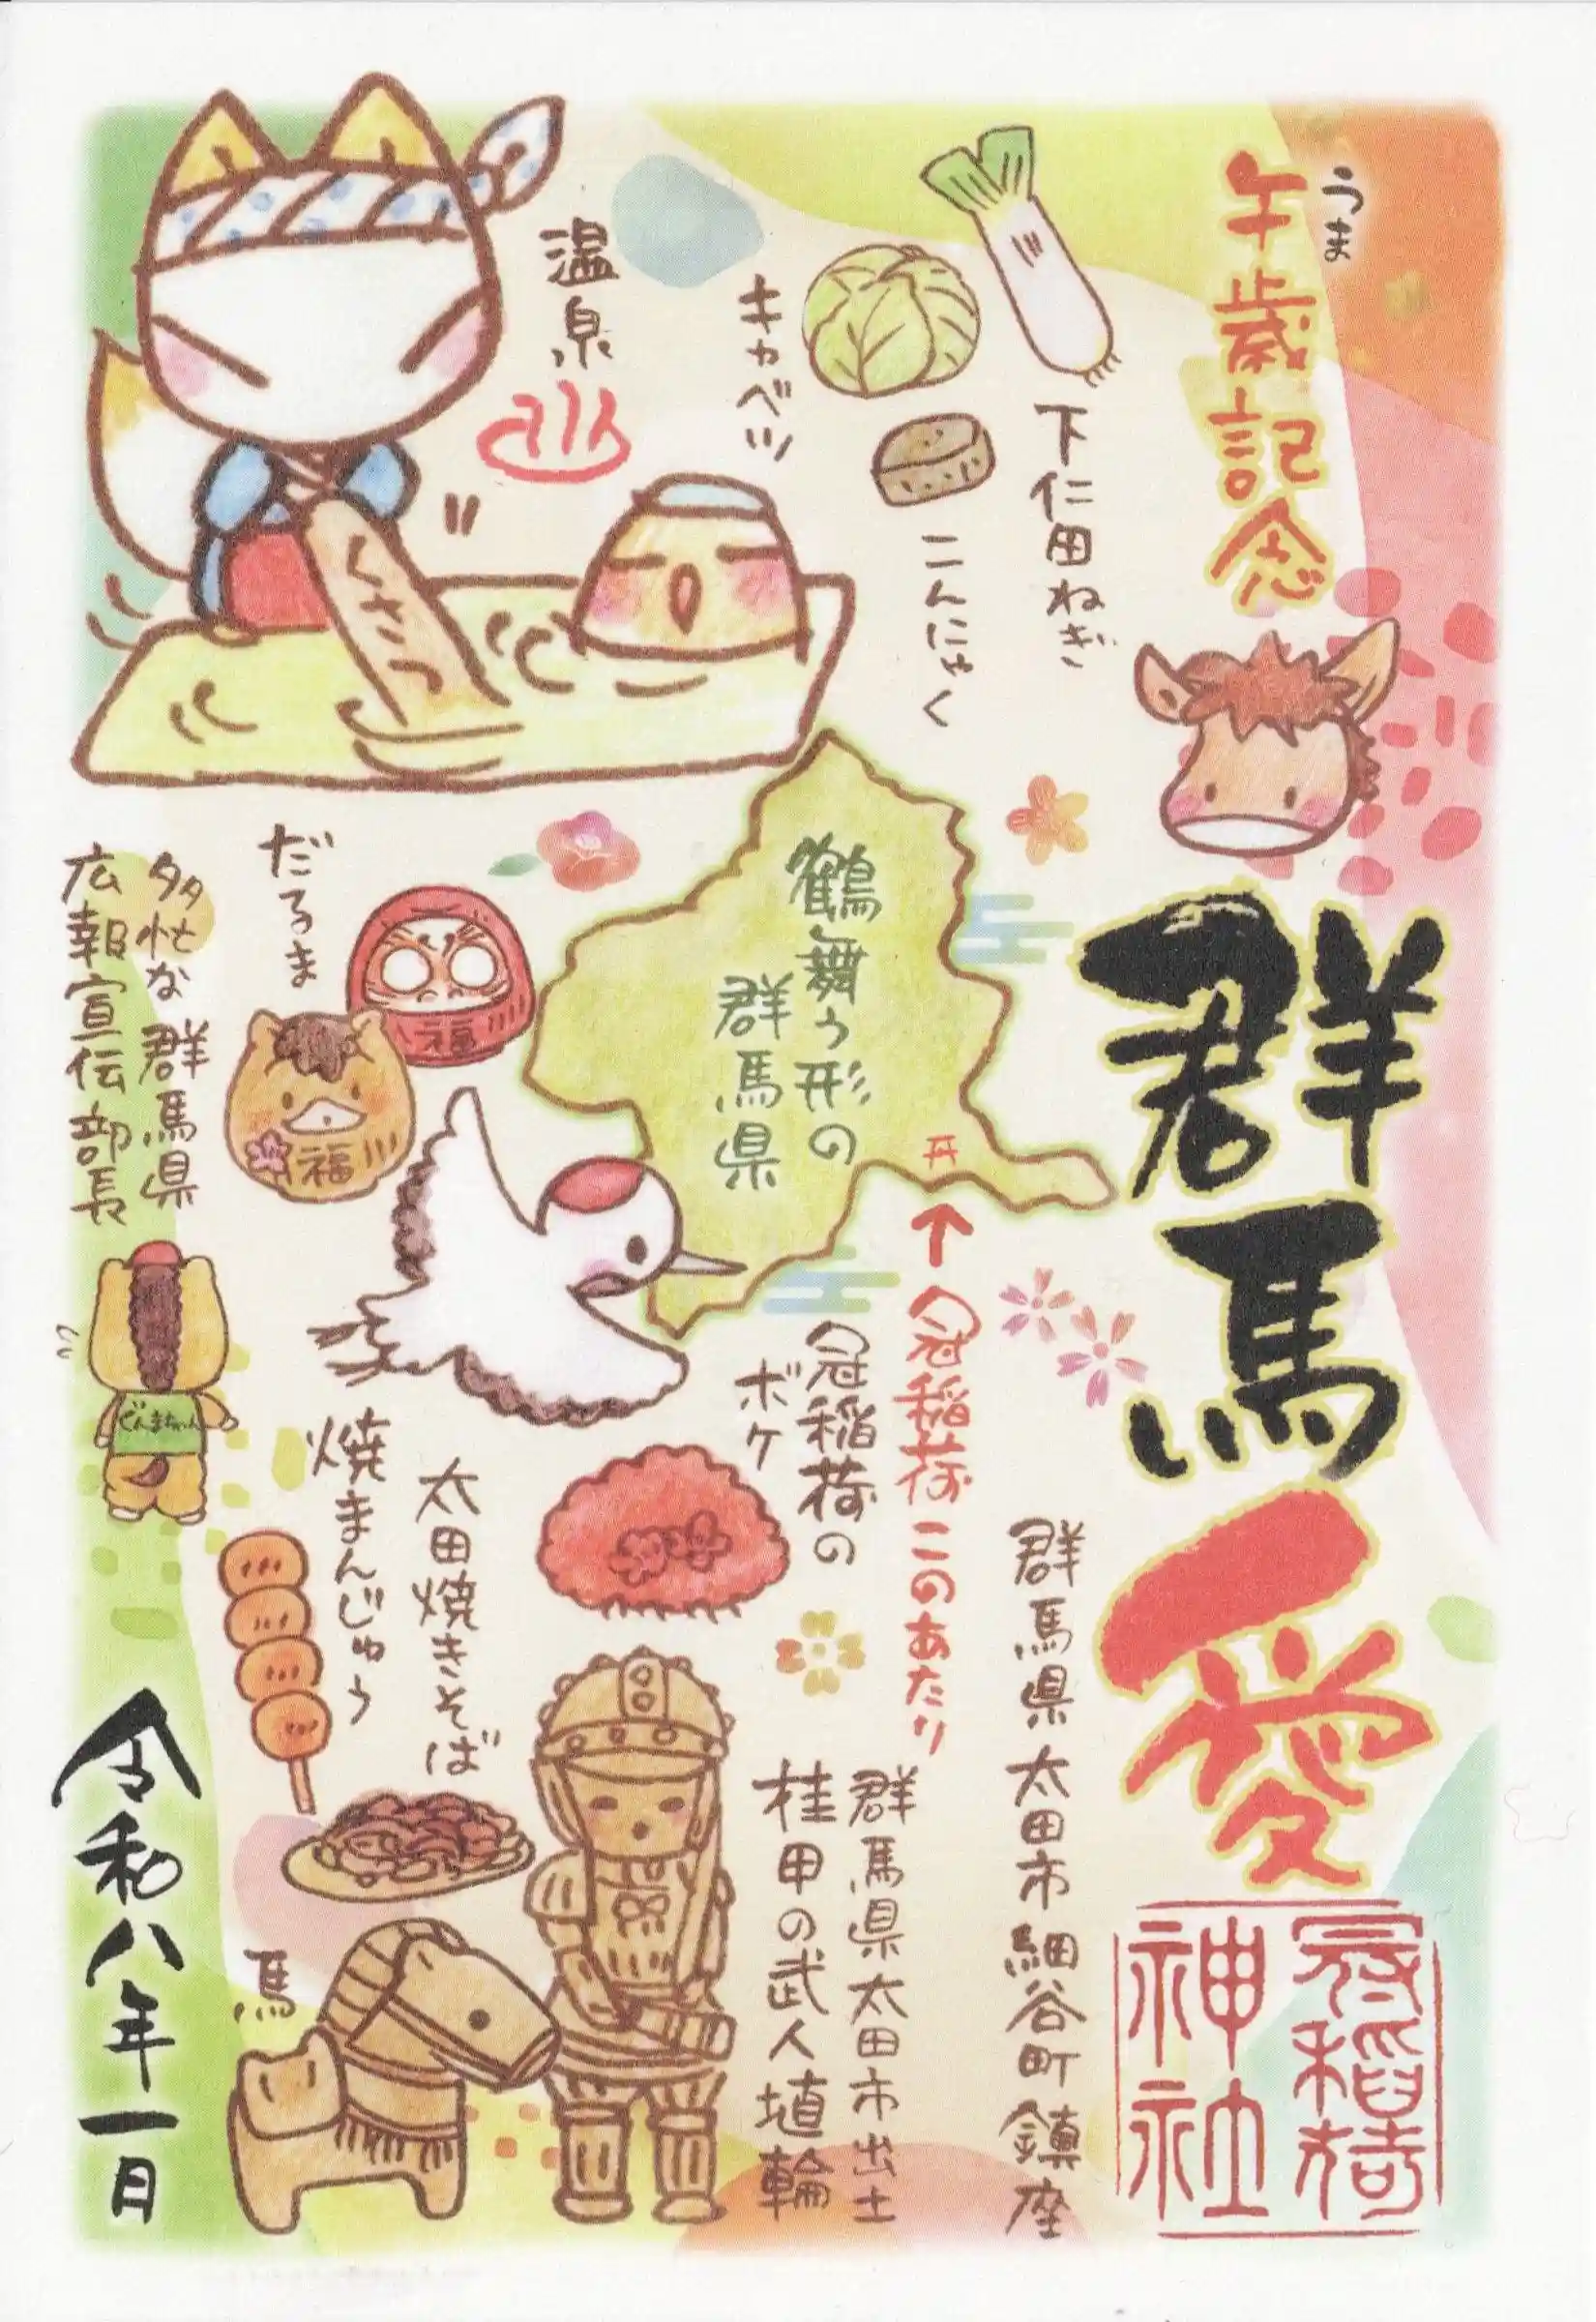 うま
午歳記念
群馬愛
冠稲荷
神社
下仁田ねぎ
キャベツ
こんにゃく
温泉
くさつ
鶴舞う形の
群馬県
↑冠稲荷このあたり
群馬県太田市細谷町鎮座
冠稲荷の
ボケ
だるま
福
福
多忙な群馬県
広報宣伝部長
ぐんまちゃん
太田焼きそば
焼まんじゅう
群馬県太田市出土
桂甲の武人埴輪
馬
令和八年一月